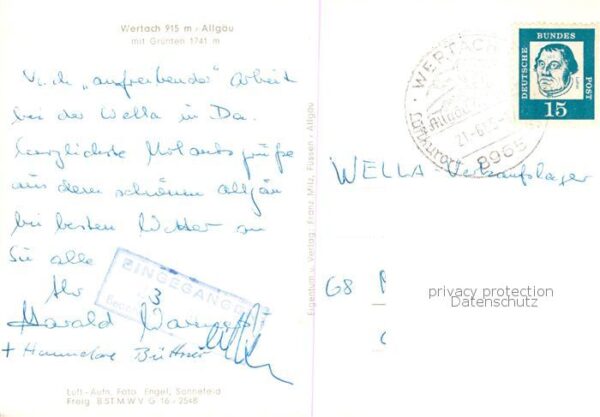 Wertach 915 m - Allgäu
mit Grünten 1741 m
Nach „aufreibender" Arbeit
bei der Wella in Da.
herzlichste Urlaubsgrüße
aus dem schönen Allgäu
bei besten Wetter an
Sie alle
Ihr
Harald
+ Hannelore Büttner
EINGEGANGEN
3
Luft-Aufn. Foto Engel, Sonnefeld
Freig. BSTMWV G 16 - 2548
Eigentum u. Verlag: Franz Milz, Füssen - Allgäu
WERTACH
Allgäu
21.-6.
Luftkurort
8965
DEUTSCHE BUNDESPOST
15
WELLA Verkaufslager
68
privacy protection
Datenschutz